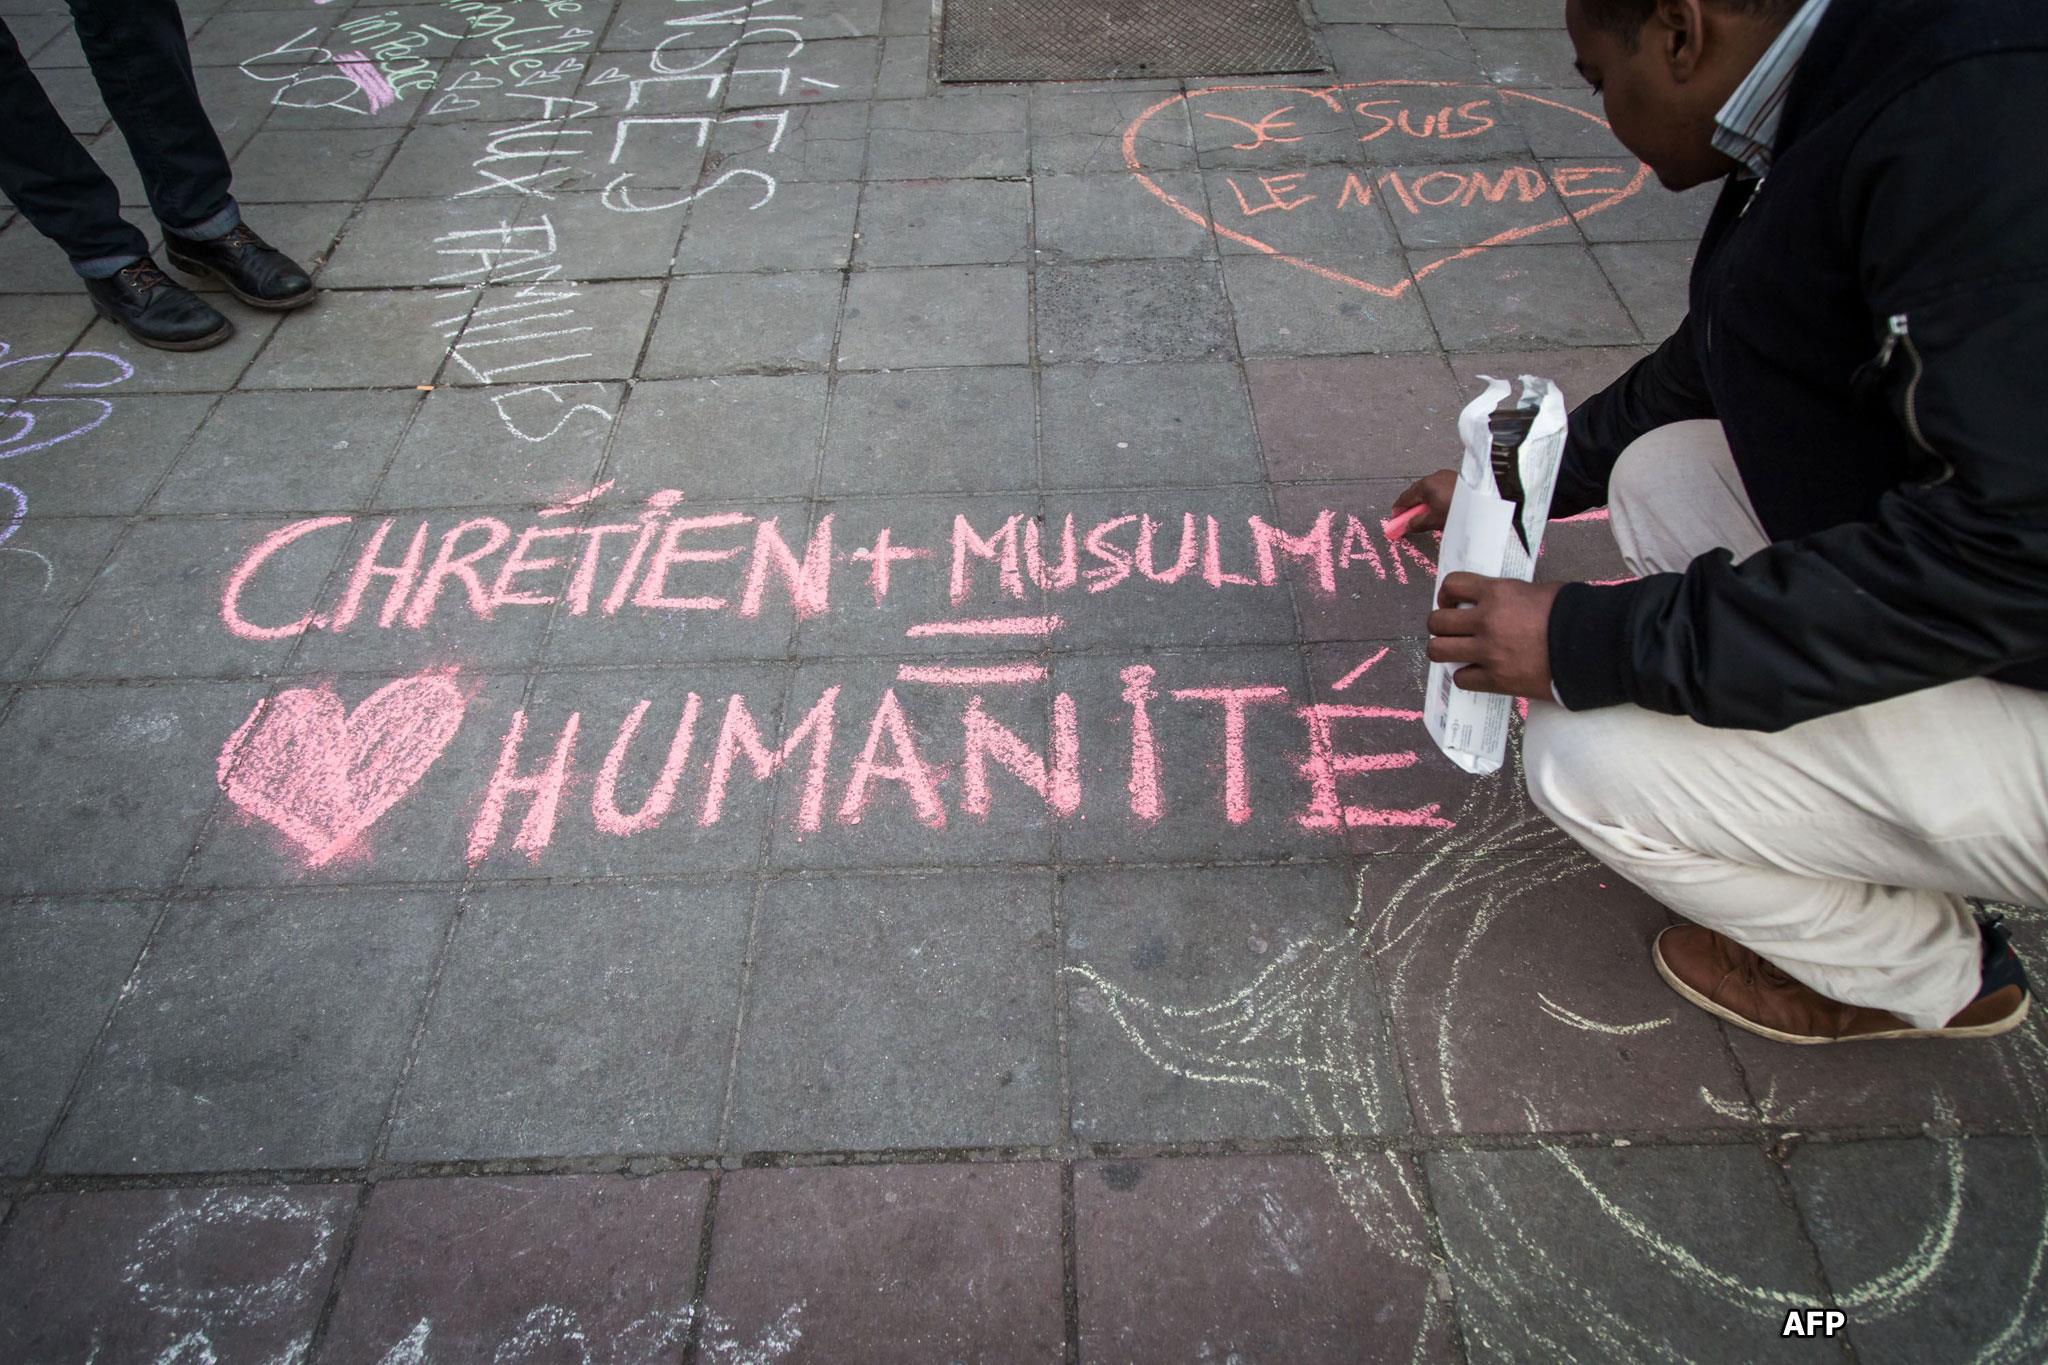 in Peace
NSÉES
AUX FAMILLES
JE SUIS
LE MONDE
CHRÉTIEN + MUSULMAN
=
HUMANITÉ
AFP